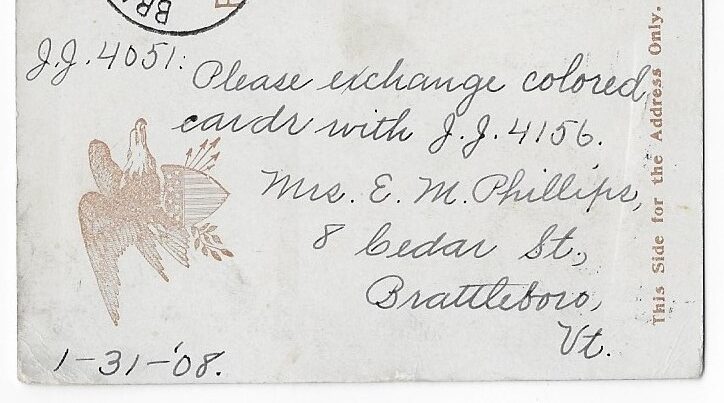 BR
J.J. 4051: Please exchange colored
cards with J.J. 4156.
Mrs. E. M. Phillips,
8 Cedar St.,
Brattleboro,
Vt.
1-31-'08.
This Side for the Address Only.